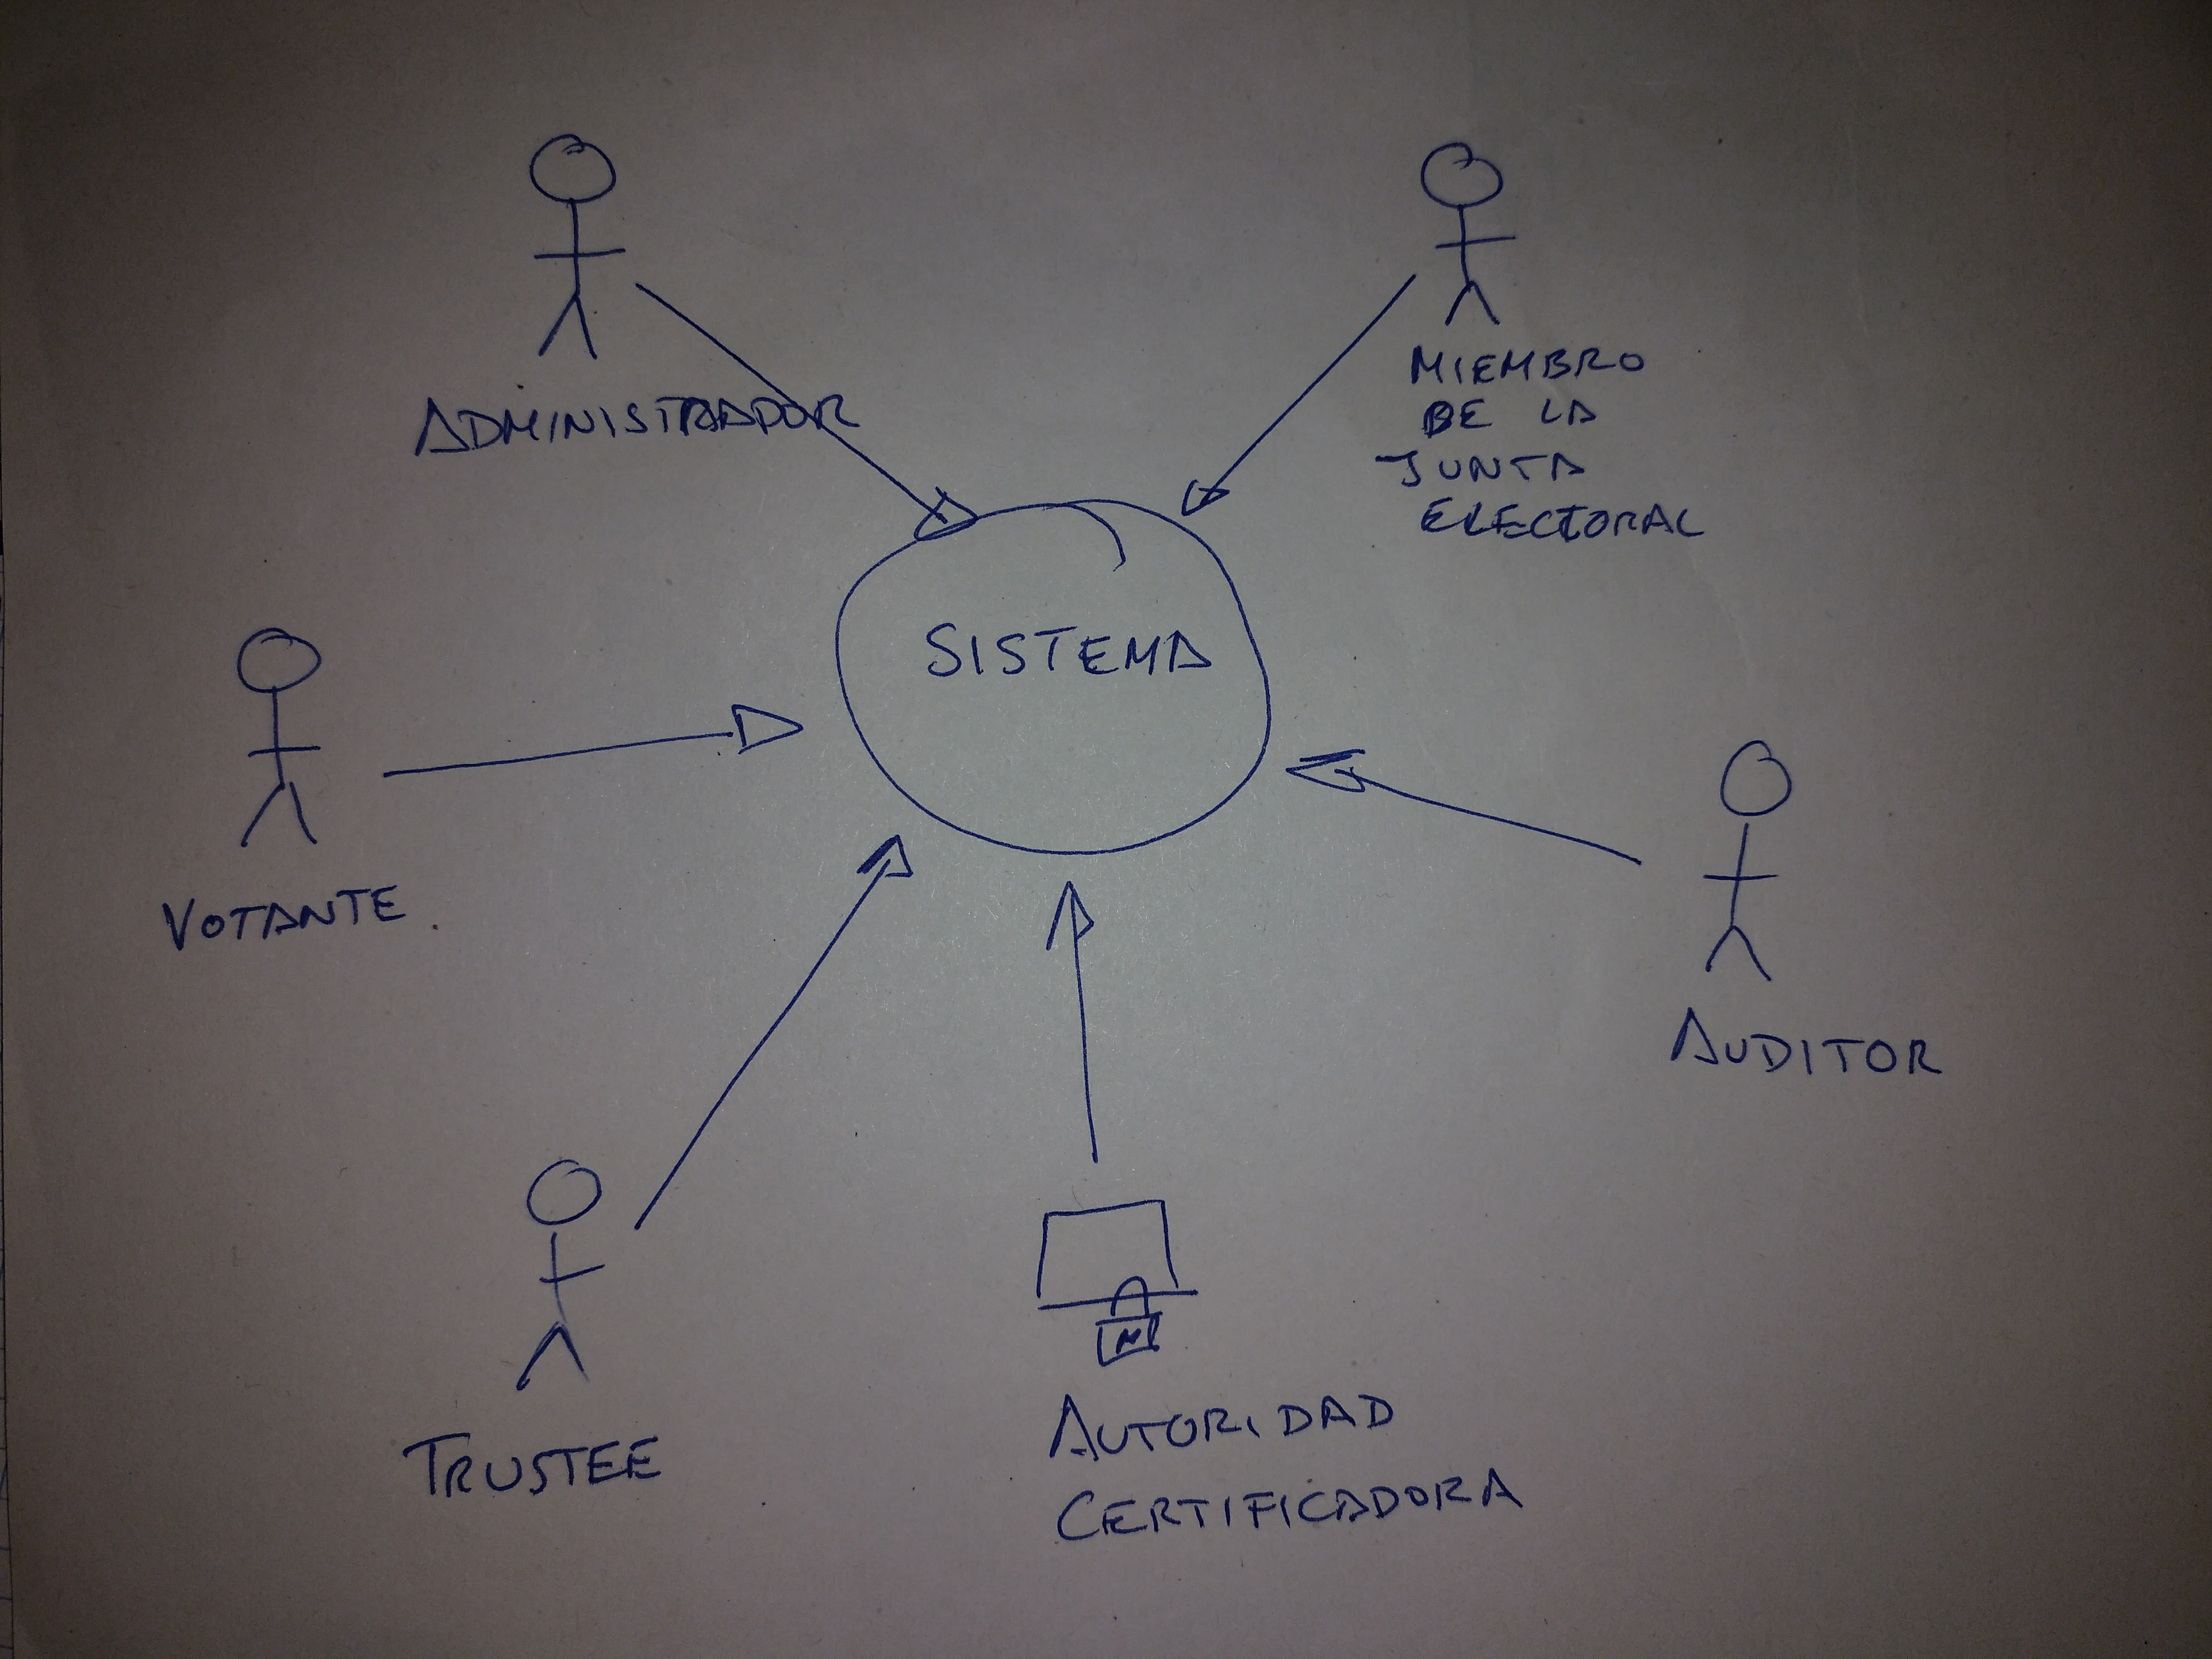 ADMINISTRADOR
MIEMBRO
DE LA
JUNTA
ELECTORAL
SISTEMA
VOTANTE
AUDITOR
TRUSTEE
AUTORIDAD
CERTIFICADORA